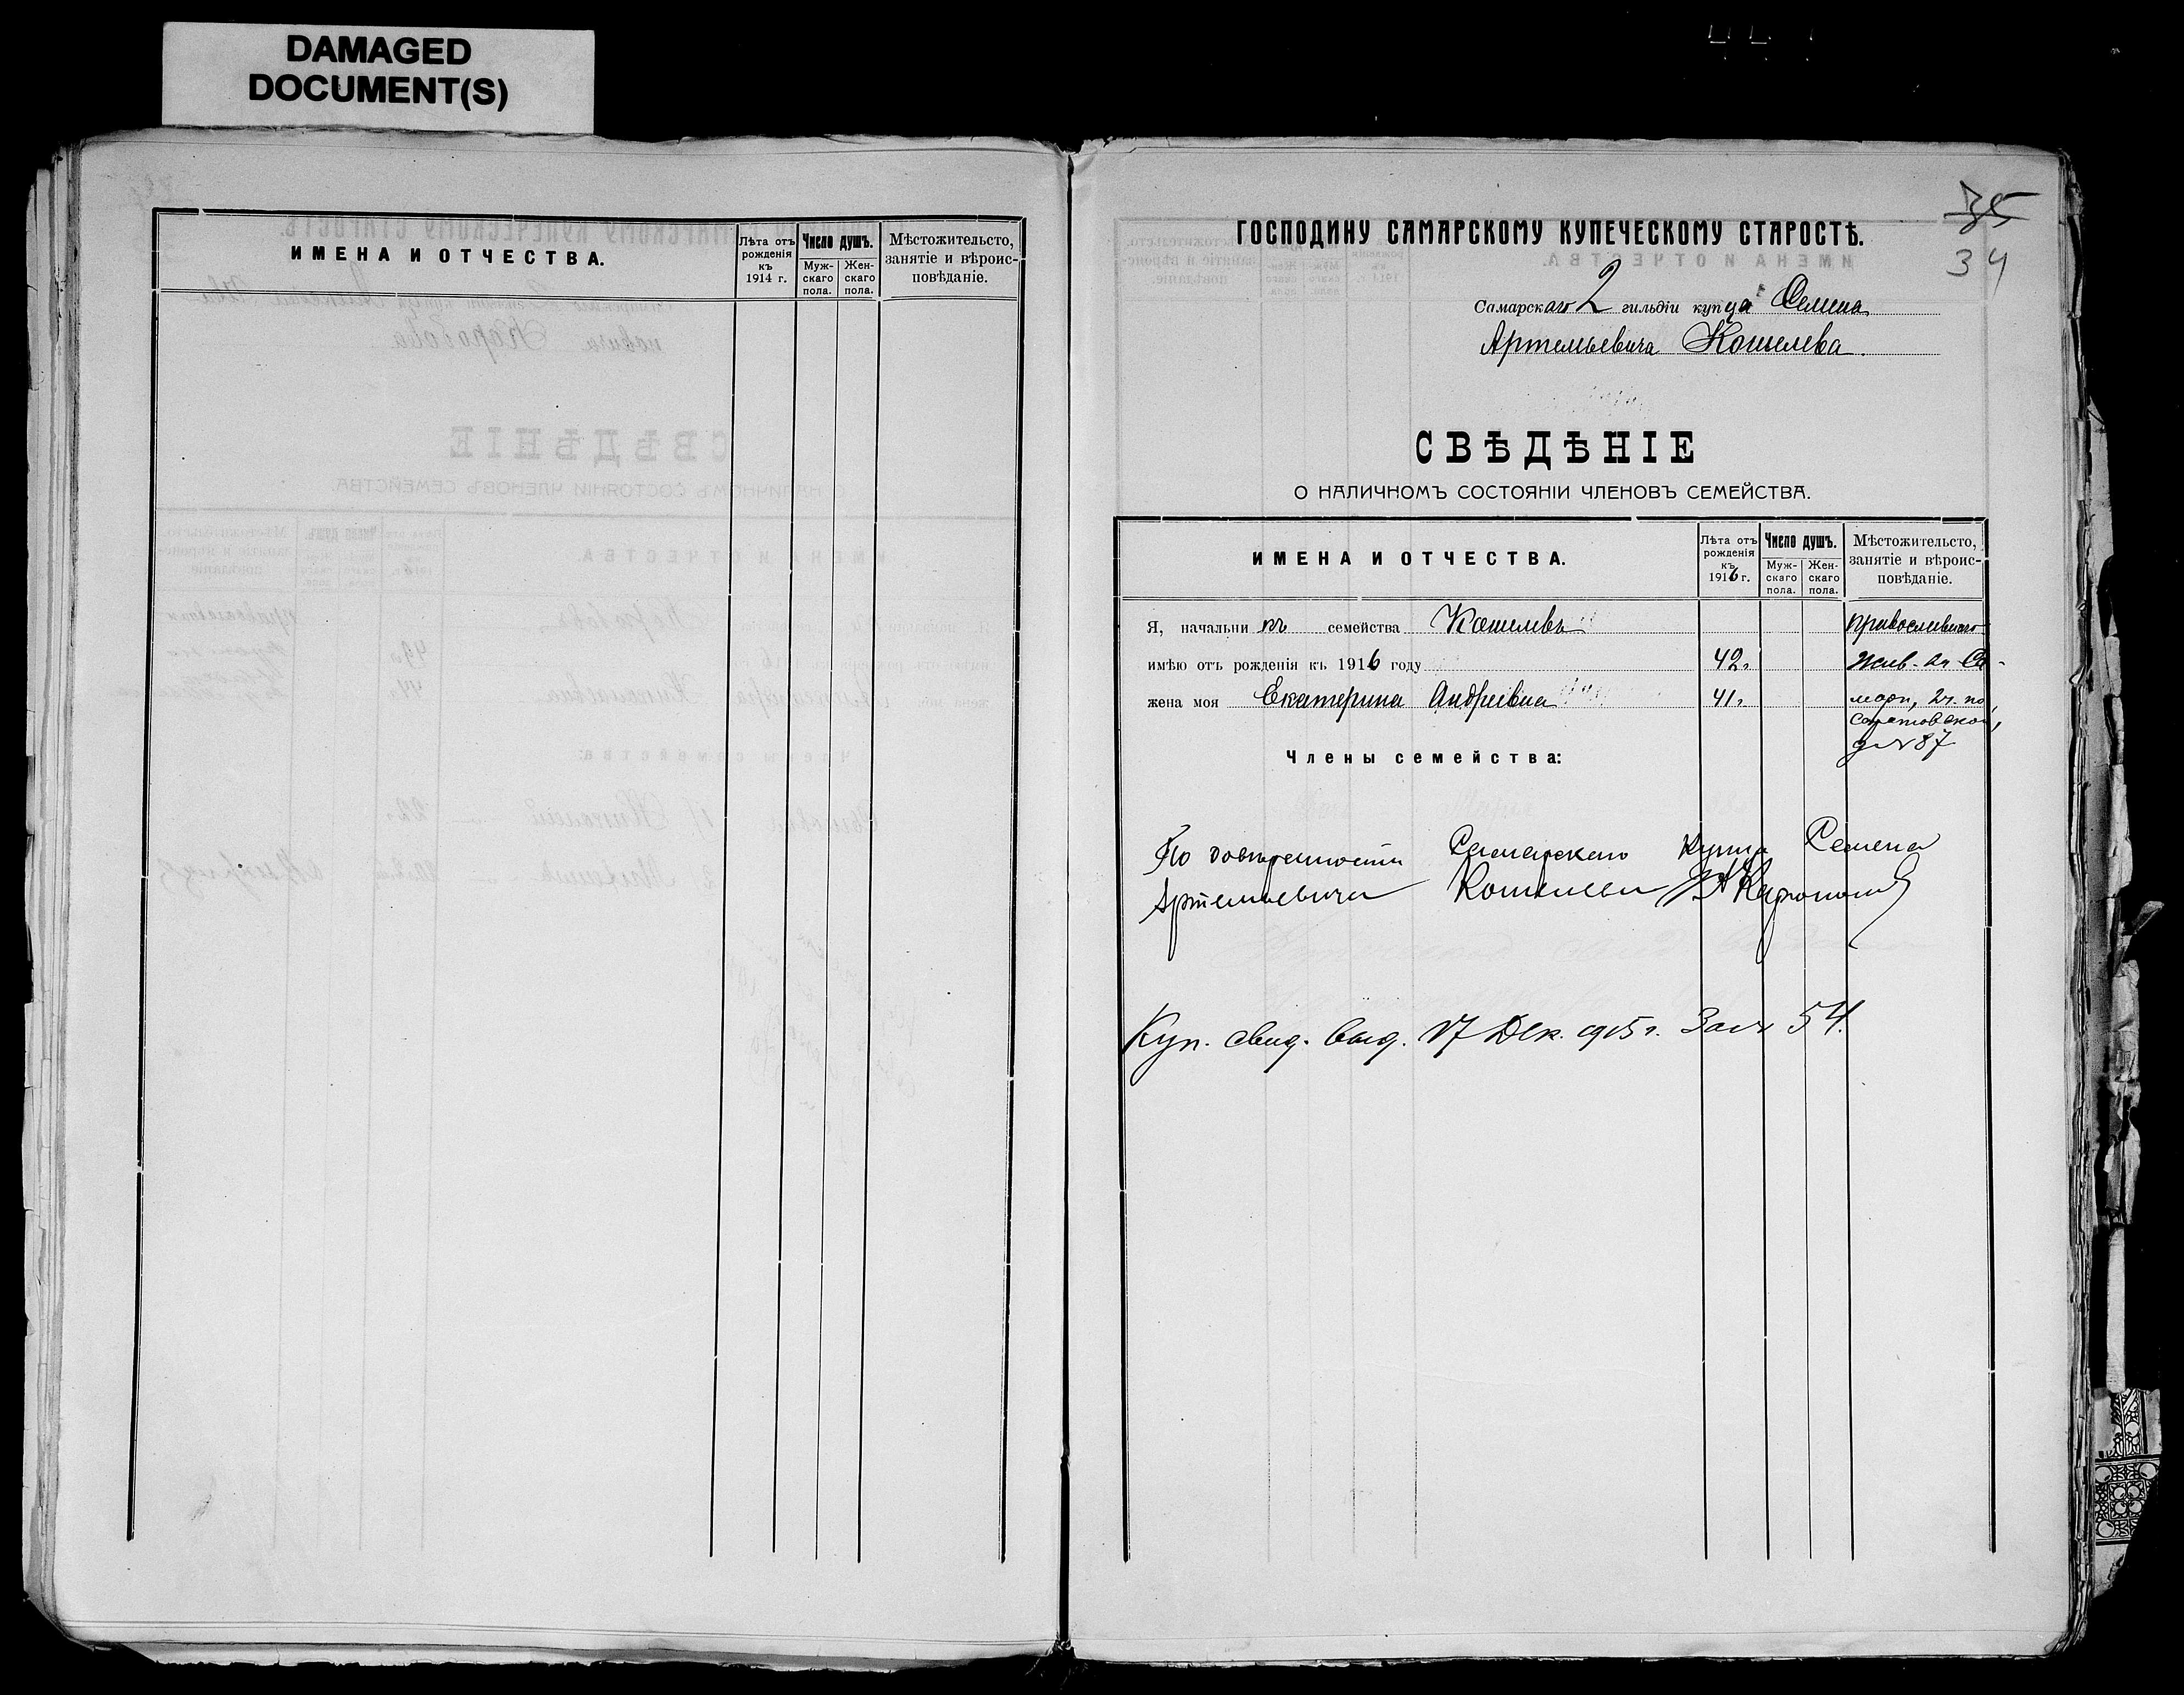 DAMAGED
DOCUMENT(S)
ИМЕНА И ОТЧЕСТВА.
Лѣта отъ рожденія къ 1914 г.
Число душъ.
Муж-скаго пола.
Жен-скаго пола.
Мѣстожительсто, занятіе и вѣроис-повѣданіе.
35
34
ГОСПОДИНУ САМАРСКОМУ КУПЕЧЕСКОМУ СТАРОСТѢ.
Самарскаго 2 гильдіи купца Семена
Артемьевича Кошелева.
СВѢДѢНІЕ
О НАЛИЧНОМЪ СОСТОЯНІИ ЧЛЕНОВЪ СЕМЕЙСТВА.
ИМЕНА И ОТЧЕСТВА.
Лѣта отъ рожденія къ 1916 г.
Число душъ.
Муж-скаго пола.
Жен-скаго пола.
Мѣстожительсто, занятіе и вѣроис-повѣданіе.
Я, начальникъ семейства Кошелевъ православнаго
имѣю отъ рожденія къ 1916 году 42 г. жив. въ Са-
жена моя Екатерина Андреевна 41 г. марѣ, 2 ч. по
Саратовской,
д. № 87
Члены семейства:
По довѣренности Самарскаго Купца Семена
Артемьевича Кошелева
Куп. свид. выд. 17 Дек. 915 г. за № 54.